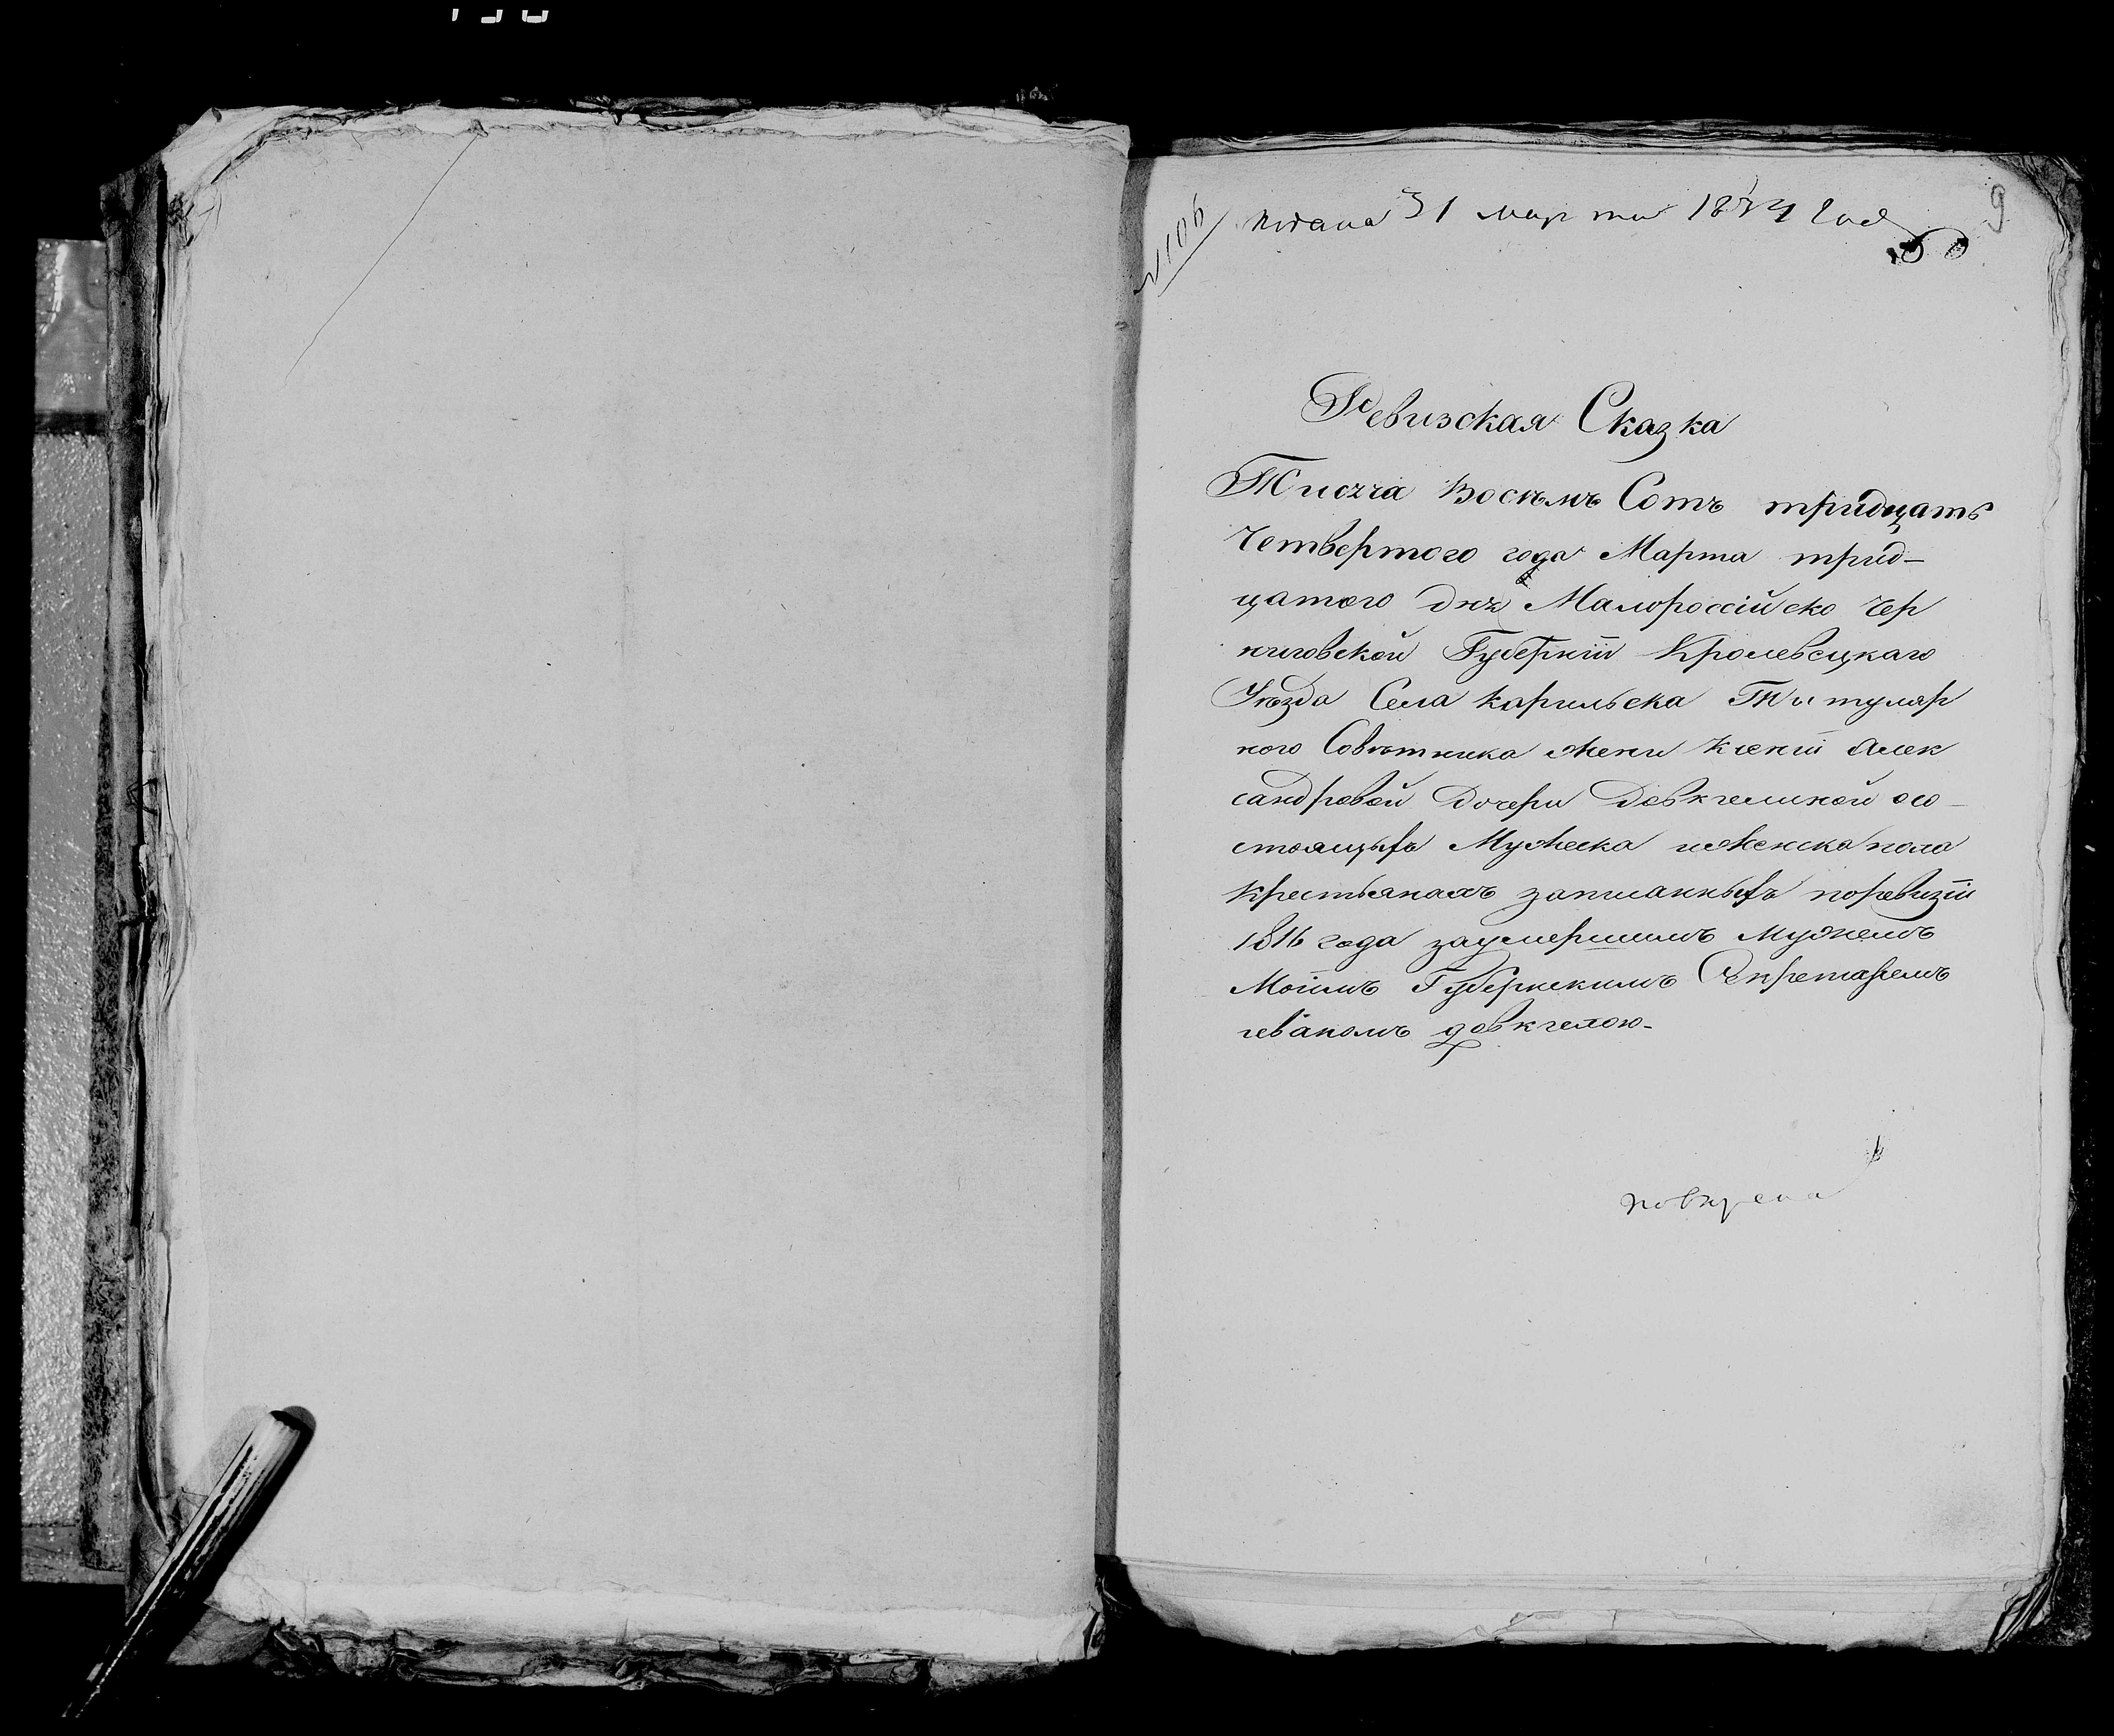 № 106 подана 31 марта 1834 года 9
Ревизская Сказка
Тисяча Восемъ Сотъ тридцать
Четвертого года Марта трид-
цатого дня Малороссійско Чер
ниговской Губерніи Кролевецкаго
Уѣзда Села Карильска Титуляр
ного Совѣтника жени Ксеніи Алек
сандровой Дочери Довкгелиной осо-
стоящыхъ Мужеска иженска пола
Крестьянахъ записанныхъ поревизіи
1816 года заумершимъ Мужемъ
Моимъ Губернскимъ Секретаремъ
Довкгелою-